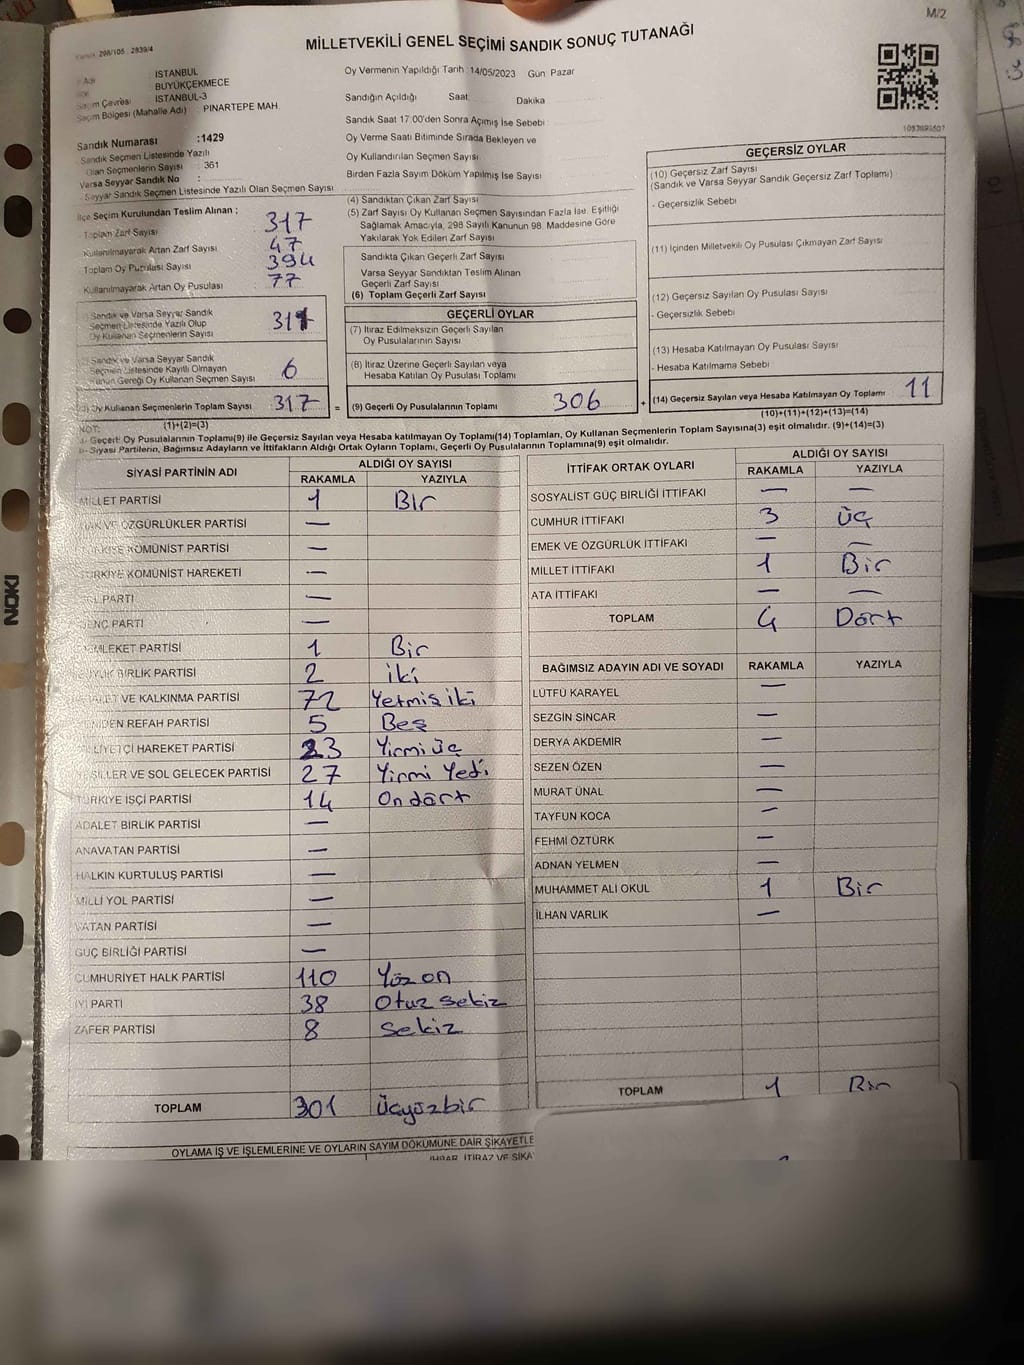 M/2
298/105 2839/4
MİLLETVEKİLİ GENEL SEÇİMİ SANDIK SONUÇ TUTANAĞI
Adı İSTANBUL
BÜYÜKÇEKMECE
Seçim Çevresi İSTANBUL-3
Seçim Bölgesi (Mahalle Adı) PINARTEPE MAH.
Sandık Numarası :1429
Sandık Seçmen Listesinde Yazılı
Olan Seçmenlerin Sayısı : 361
Varsa Seyyar Sandık No :
Seyyar Sandık Seçmen Listesinde Yazılı Olan Seçmen Sayısı
Oy Vermenin Yapıldığı Tarih :14/05/2023 Gün: Pazar
Sandığın Açıldığı Saat Dakika
Sandık Saat 17:00'den Sonra Açmış İse Sebebi :
Oy Verme Saati Bitiminde Sırada Bekleyen ve
Oy Kullandırılan Seçmen Sayısı
Birden Fazla Sayım Döküm Yapılmış İse Sayısı
1057899507
İlçe Seçim Kurulundan Teslim Alınan ;
Toplam Zarf Sayısı 317
Kullanılmayarak Artan Zarf Sayısı 47
Toplam Oy Pusulası Sayısı 394
Kullanılmayarak Artan Oy Pusulası 77
Sandık ve Varsa Seyyar Sandık
Seçmen Listesinde Yazılı Olup
Oy Kullanan Seçmenlerin Sayısı
Sandık ve Varsa Seyyar Sandık
Seçmen Listesinde Kayıtlı Olmayan
Kanun Gereği Oy Kullanan Seçmen Sayısı 6
Oy Kullanan Seçmenlerin Toplam Sayısı 317
(1)+(2)=(3)
(4) Sandıktan Çıkan Zarf Sayısı
(5) Zarf Sayısı Oy Kullanan Seçmen Sayısından Fazla İse, Eşitliği
Sağlamak Amacıyla, 298 Sayılı Kanunun 98. Maddesine Göre
Yakılarak Yok Edilen Zarf Sayısı
Sandıkta Çıkan Geçerli Zarf Sayısı
Varsa Seyyar Sandıktan Teslim Alınan
Geçerli Zarf Sayısı
(6) Toplam Geçerli Zarf Sayısı
GEÇERLİ OYLAR
(7) İtiraz Edilmeksizin Geçerli Sayılan
Oy Pusulalarının Sayısı
(8) İtiraz Üzerine Geçerli Sayılan veya
Hesaba Katılan Oy Pusulası Toplamı
= (9) Geçerli Oy Pusulalarının Toplamı 306 +
GEÇERSİZ OYLAR
(10) Geçersiz Zarf Sayısı
(Sandık ve Varsa Seyyar Sandık Geçersiz Zarf Toplamı)
- Geçersizlik Sebebi
(11) İçinden Milletvekili Oy Pusulası Çıkmayan Zarf Sayısı
(12) Geçersiz Sayılan Oy Pusulası Sayısı
- Geçersizlik Sebebi
(13) Hesaba Katılmayan Oy Pusulası Sayısı
- Hesaba Katılmama Sebebi
(14) Geçersiz Sayılan veya Hesaba Katılmayan Oy Toplamı 11
(10)+(11)+(12)+(13)=(14)
NOT:
a- Geçerli Oy Pusulalarının Toplamı(9) ile Geçersiz Sayılan veya Hesaba katılmayan Oy Toplamı(14) Toplamları, Oy Kullanan Seçmenlerin Toplam Sayısına(3) eşit olmalıdır. (9)+(14)=(3)
b- Siyasi Partilerin, Bağımsız Adayların ve İttifakların Aldığı Ortak Oyların Toplamı, Geçerli Oy Pusulalarının Toplamına(9) eşit olmalıdır.
SİYASİ PARTİNİN ADI ALDIĞI OY SAYISI
RAKAMLA YAZIYLA
MİLLET PARTİSİ 1 Bir
HAK VE ÖZGÜRLÜKLER PARTİSİ —
TÜRKİYE KOMÜNİST PARTİSİ —
TÜRKİYE KOMÜNİST HAREKETİ —
PARTİ —
GENÇ PARTİ —
MEMLEKET PARTİSİ 1 Bir
BÜYÜK BİRLİK PARTİSİ 2 iki
ADALET VE KALKINMA PARTİSİ 72 Yetmiş iki
YENİDEN REFAH PARTİSİ 5 Beş
MİLLİYETÇİ HAREKET PARTİSİ 23 Yirmi üç
YEŞİLLER VE SOL GELECEK PARTİSİ 27 Yirmi Yedi
TÜRKİYE İŞÇİ PARTİSİ 14 On dört
ADALET BİRLİK PARTİSİ —
ANAVATAN PARTİSİ —
HALKIN KURTULUŞ PARTİSİ —
MİLLİ YOL PARTİSİ —
VATAN PARTİSİ —
GÜÇ BİRLİĞİ PARTİSİ —
CUMHURİYET HALK PARTİSİ 110 Yüz on
İYİ PARTİ 38 Otuz sekiz
ZAFER PARTİSİ 8 Sekiz
TOPLAM 301 Üçyüzbir
İTTİFAK ORTAK OYLARI ALDIĞI OY SAYISI
RAKAMLA YAZIYLA
SOSYALİST GÜÇ BİRLİĞİ İTTİFAKI — —
CUMHUR İTTİFAKI 3 üç
EMEK VE ÖZGÜRLÜK İTTİFAKI — —
MİLLET İTTİFAKI 1 Bir
ATA İTTİFAKI — —
TOPLAM 4 Dört
BAĞIMSIZ ADAYIN ADI VE SOYADI RAKAMLA YAZIYLA
LÜTFÜ KARAYEL —
SEZGİN SİNCAR —
DERYA AKDEMİR —
SEZEN ÖZEN —
MURAT ÜNAL —
TAYFUN KOCA —
FEHMİ ÖZTÜRK —
ADNAN YELMEN —
MUHAMMET ALİ OKUL 1 Bir
İLHAN VARLIK —
TOPLAM 1 Bir
OYLAMA İŞ VE İŞLEMLERİNE VE OYLARIN SAYIM DÖKÜMÜNE DAİR ŞİKAYETLE
İHBAR, İTİRAZ VE ŞİKA
NOKI